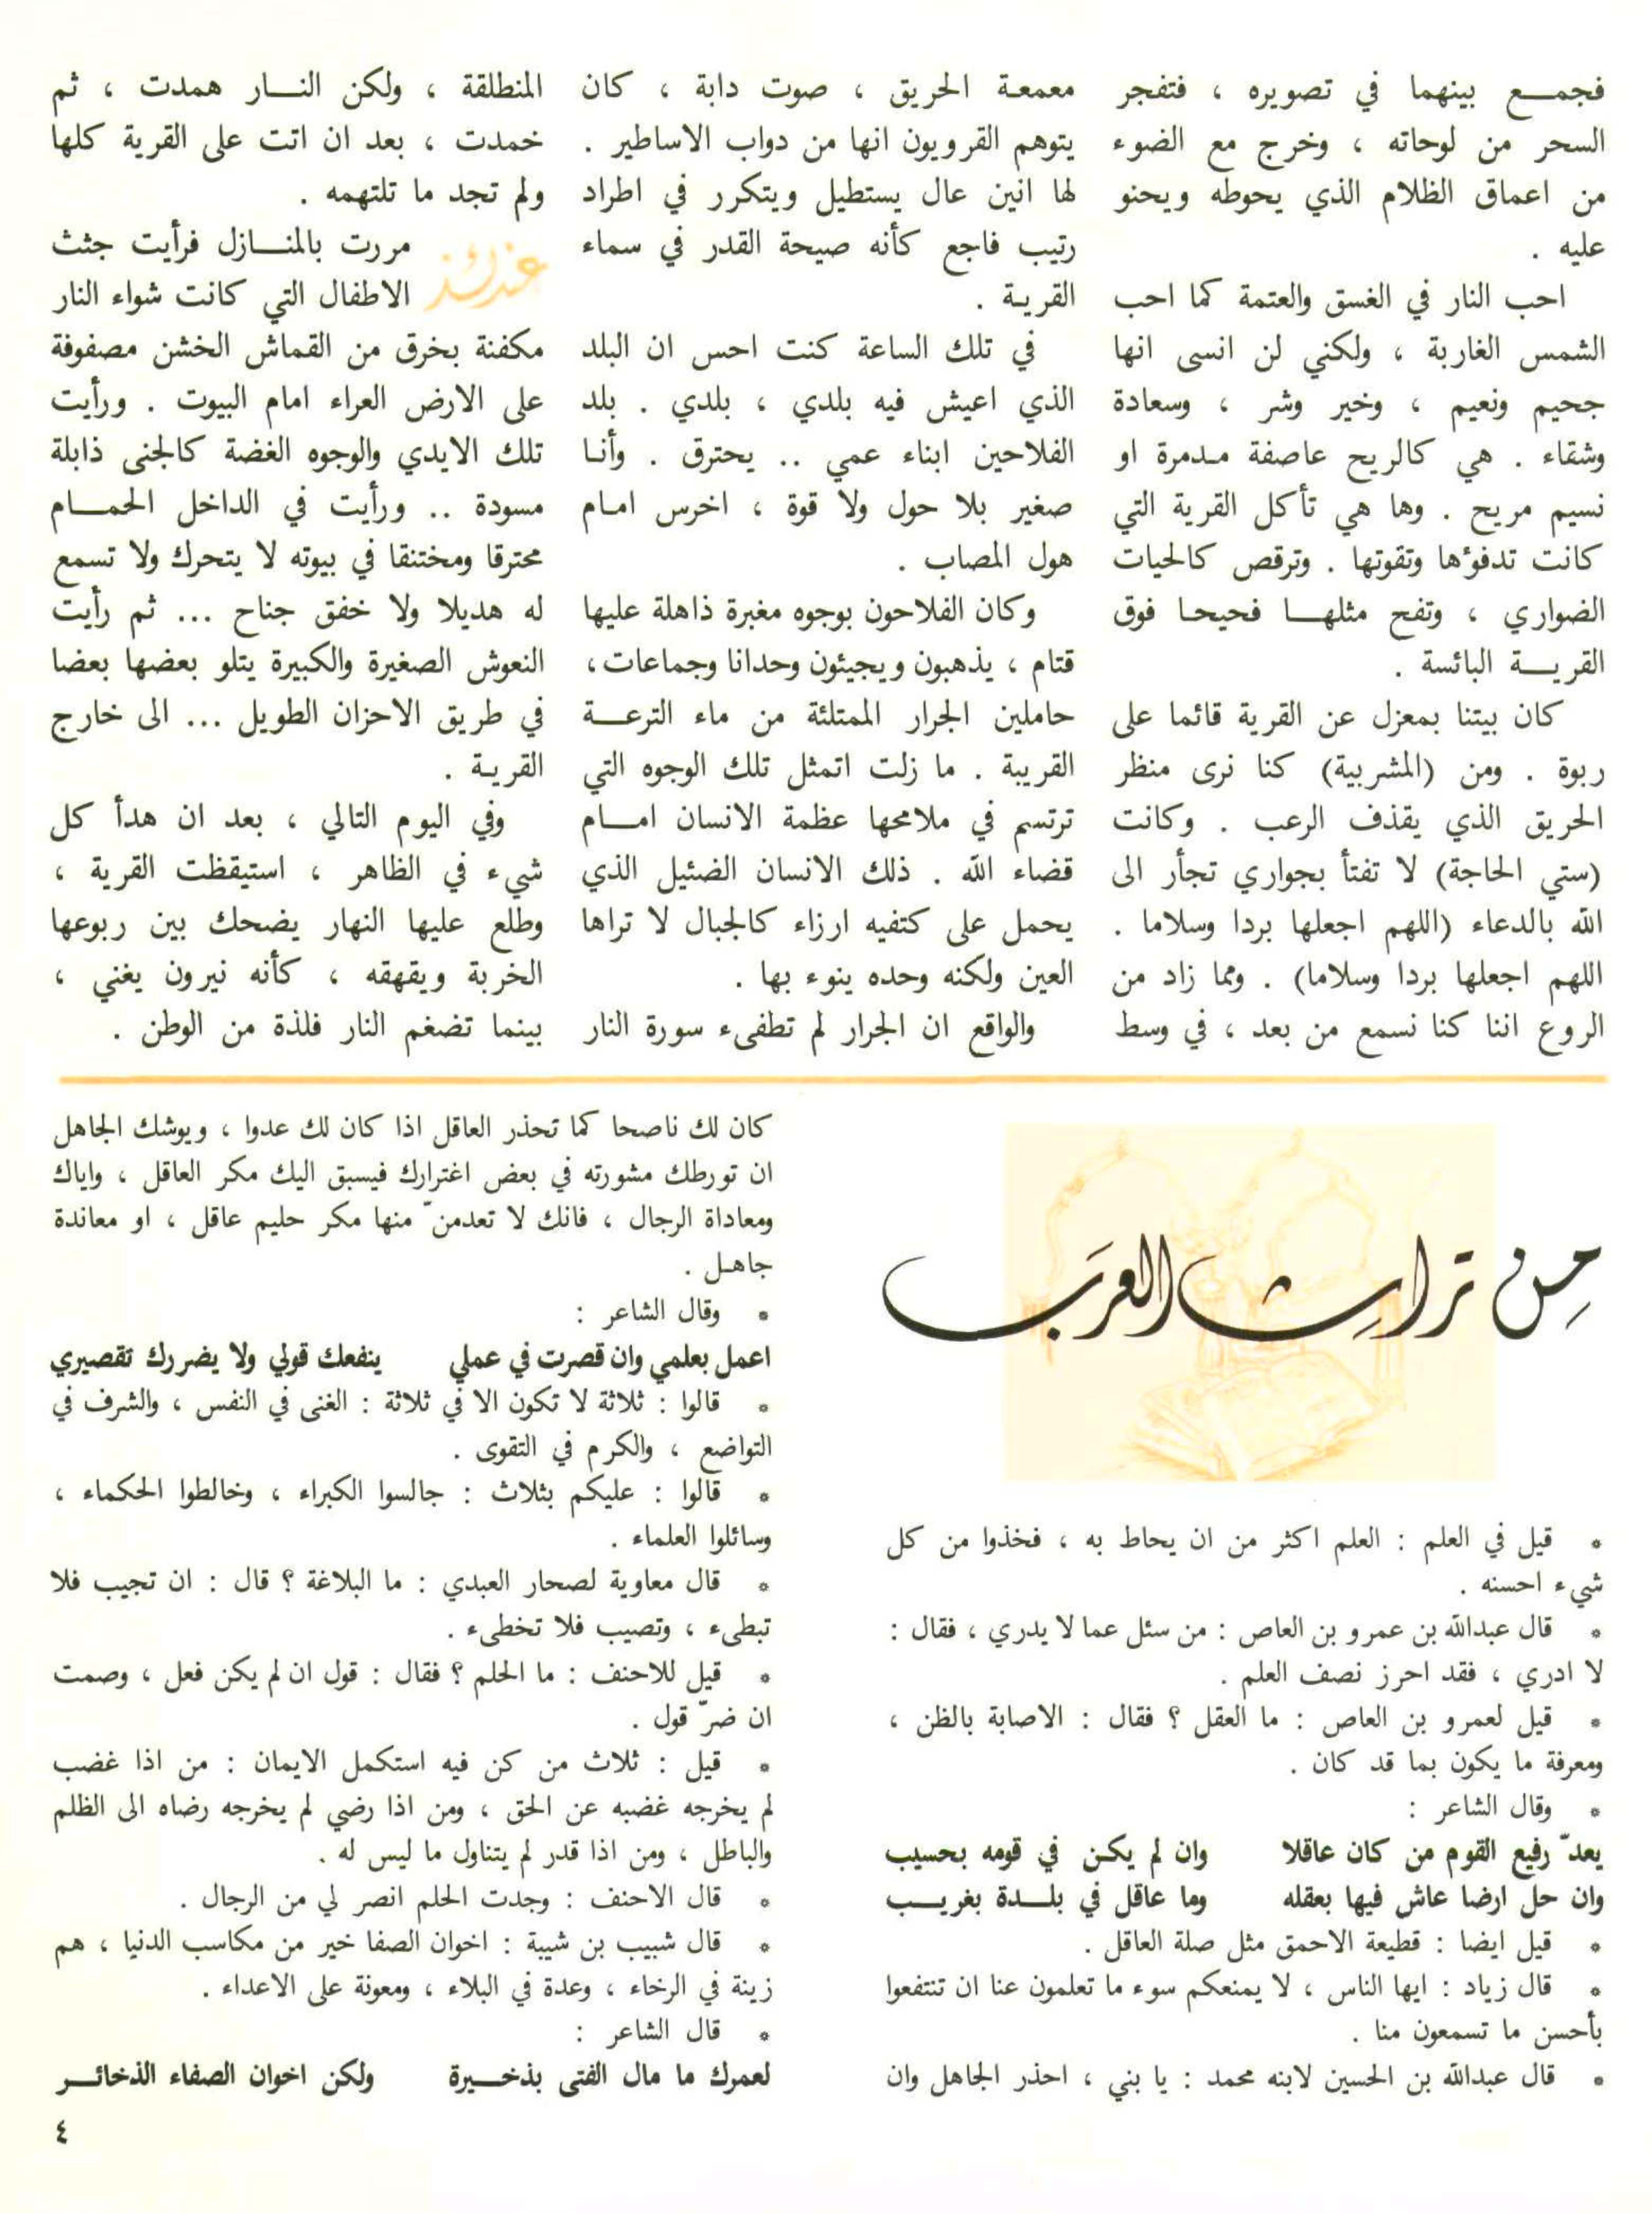 فجمـــع بينهما في تصويره ، فتفجر
السحر من لوحاته ، وخرج مع الضوء
من اعماق الظلام الذي يحوطه ويحنو
عليه .
احب النار في الغسق والعتمة كما احب
الشمس الغاربة ، ولكني لن انسى انها
جحيم ونعيم ، وخير وشر ، وسعادة
وشقاء . هي كالريح عاصفة مـدمرة او
نسيم مريح . وها هي تأكل القرية التي
كانت تدفؤها وتقوتها . وترقص كالحيات
الضواري ، وتفح مثلهـــا فحيحـا فوق
القريـــة البائسة .
كان بيتنا بمعزل عن القرية قائما على
ربوة . ومن (المشربية) كنا نرى منظر
الحريق الذي يقذف الرعب . وكانت
(ستي الحاجة) لا تفتأ بجواري تجأر الى
الله بالدعاء (اللهم اجعلها بردا وسلاما .
اللهم اجعلها بردا وسلاما) . ومما زاد من
الروع اننا كنا نسمع من بعد ، في وسط
معمعـة الحريق ، صوت دابة ، كان
يتوهم القرويون انها من دواب الاساطير .
لها انين عال يستطيل ويتكرر في اطراد
رتيب فاجع كأنه صيحة القدر في سماء
القريـة .
في تلك الساعة كنت احس ان البلد
الذي اعيش فيه بلدي ، بلدي . بلد
الفلاحين ابناء عمي .. يحترق . وأنـا
صغير بلا حول ولا قوة ، اخرس امـام
هول المصاب .
وكان الفلاحون بوجوه مغبرة ذاهلة عليها
قتام ، يذهبون ويجيئون وحدانا وجماعات،
حاملين الجرار الممتلئة من ماء الترعـــة
القريبة . ما زلت اتمثل تلك الوجوه التي
ترتسم في ملامحها عظمة الانسان امـــام
قضاء الله . ذلك الانسان الضئيل الذي
يحمل على كتفيه ارزاء كالجبال لا تراها
العين ولكنه وحده ينوء بها .
والواقع ان الجرار لم تطفىء سورة النار
المنطلقة ، ولكن النـــار همدت ، ثم
خمدت ، بعد ان اتت على القرية كلها
ولم تجد ما تلتهمه .
عندئذ مررت بالمنـــازل فرأيت جثث
الاطفال التي كانت شواء النار
مكفنة بخرق من القماش الخشن مصفوفة
على الارض العراء امام البيوت . ورأيت
تلك الايدي والوجوه الغضة كالجنى ذابلة
مسودة .. ورأيت في الداخل الحمـــام
محترقا ومختنقا في بيوته لا يتحرك ولا تسمع
له هديلا ولا خفق جناح ... ثم رأيت
النعوش الصغيرة والكبيرة يتلو بعضها بعضا
في طريق الاحزان الطويل ... الى خارج
القريـة .
وفي اليوم التالي ، بعد ان هدأ كل
شيء في الظاهر ، استيقظت القرية ،
وطلع عليها النهار يضحك بين ربوعها
الخربة ويقهقه ، كأنه نيرون يغني ،
بينما تضغم النار فلذة من الوطن .
من تراث العرب
* قيل في العلم : العلم اكثر من ان يحاط به ، فخذوا من كل
شيء احسنه .
* قال عبدالله بن عمرو بن العاص : من سئل عما لا يدري ، فقال :
لا ادري ، فقد احرز نصف العلم .
* قيل لعمرو بن العاص : ما العقل ؟ فقال : الاصابة بالظن ،
ومعرفة ما يكون بما قد كان .
* وقال الشاعر :
يعدّ رفيع القوم من كان عاقلا    وان لم يكـن في قومه بحسيب
وان حل ارضا عاش فيها بعقله    وما عاقل في بلـــدة بغريـــب
* قيل ايضا : قطيعة الاحمق مثل صلة العاقل .
* قال زياد : ايها الناس ، لا يمنعكم سوء ما تعلمون عنا ان تنتفعوا
بأحسن ما تسمعون منا .
* قال عبدالله بن الحسين لابنه محمد : يا بني ، احذر الجاهل وان
كان لك ناصحا كما تحذر العاقل اذا كان لك عدوا ، ويوشك الجاهل
ان تورطك مشورته في بعض اغترارك فيسبق اليك مكر العاقل ، واياك
ومعاداة الرجال ، فانك لا تعدمنّ منها مكر حليم عاقل ، او معاندة
جاهـل .
* وقال الشاعر :
اعمل بعلمي وان قصرت في عملي    ينفعك قولي ولا يضررك تقصيري
* قالوا : ثلاثة لا تكون الا في ثلاثة : الغنى في النفس ، والشرف في
التواضع ، والكرم في التقوى .
* قالوا : عليكم بثلاث : جالسوا الكبراء ، وخالطوا الحكماء ،
وسائلوا العلماء .
* قال معاوية لصحار العبدي : ما البلاغة ؟ قال : ان تجيب فلا
تبطىء ، وتصيب فلا تخطىء .
* قيل للاحنف : ما الحلم ؟ فقال : قول ان لم يكن فعل ، وصمت
ان ضرّ قول .
* قيل : ثلاث من كن فيه استكمل الايمان : من اذا غضب
لم يخرجه غضبه عن الحق ، ومن اذا رضي لم يخرجه رضاه الى الظلم
والباطل ، ومن اذا قدر لم يتناول ما ليس له .
* قال الاحنف : وجدت الحلم انصر لي من الرجال .
* قال شبيب بن شيبة : اخوان الصفا خير من مكاسب الدنيا ، هم
زينة في الرخاء ، وعدة في البلاء ، ومعونة على الاعداء .
* قال الشاعر :
لعمرك ما مال الفتى بذخـــيرة    ولكن اخوان الصفاء الذخائـــر
٤